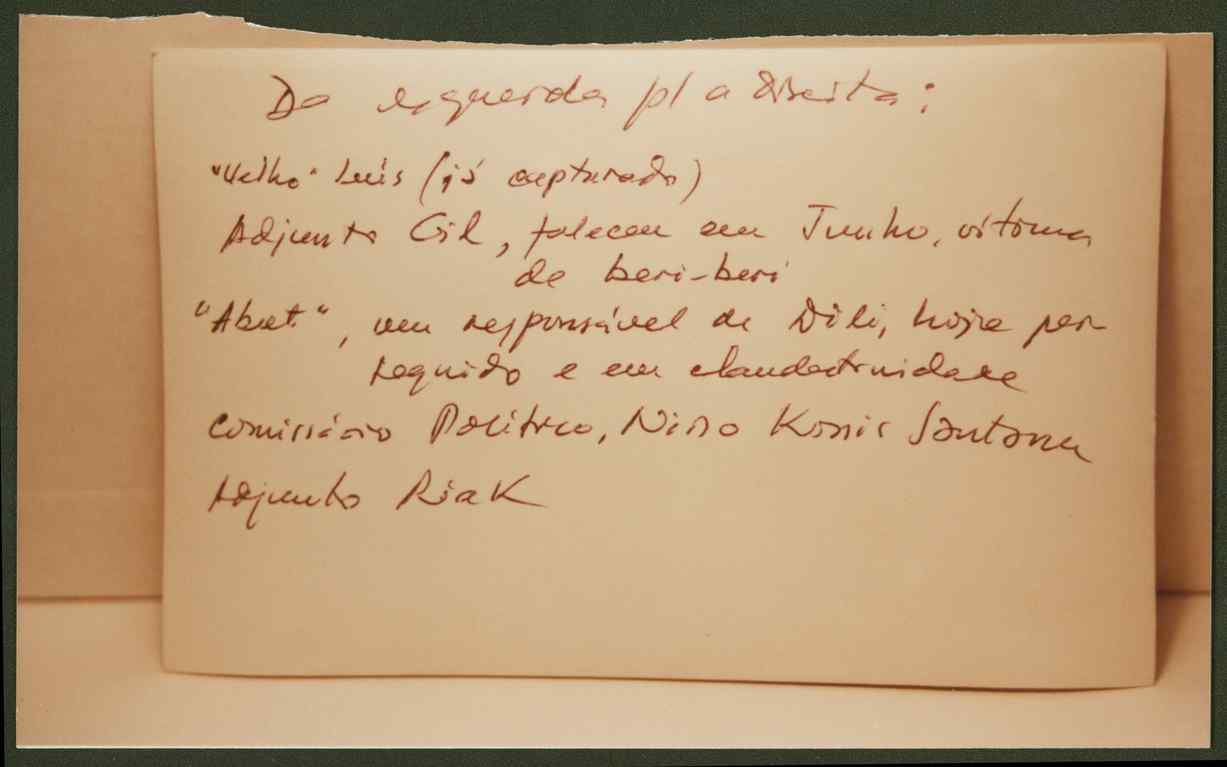 Da esquerda p/ a direita:
"Velho" Luís (já capturado)
Adjunto Gil, faleceu em Junho, vítima
de beri-beri
"Abut", um responsável de Dili, hoje per-
seguido e em clandestinidade
Comissário Político, Nino Konis Santana
Adjunto Riak